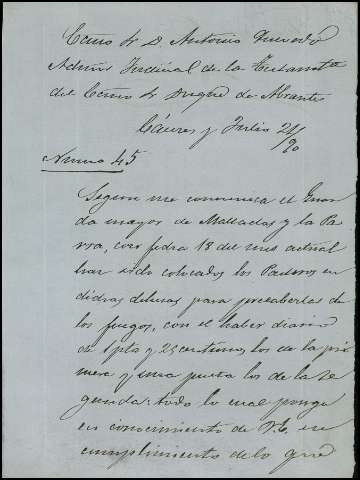 Excmo Sr D. Antonio Quevedo
Admor Judicial de la Testamtª
del Excmo Sr Duque de Abrantes
Cáceres y Julio 21/90
Numero 45
Segun me comunica el Guar
da mayor de Malladas y la Pa
rra, con fecha 18 del mes actual
han sido colocados los Peatones en
dichas dehesas para precaberlas de
los fuegos, con el haber diario
de 1 pta y 25 centimos los de la pri
mera y una peseta los de la se
gunda: todo lo cual pongo
en conocimiento de V.E. en
cumplimiento de lo que